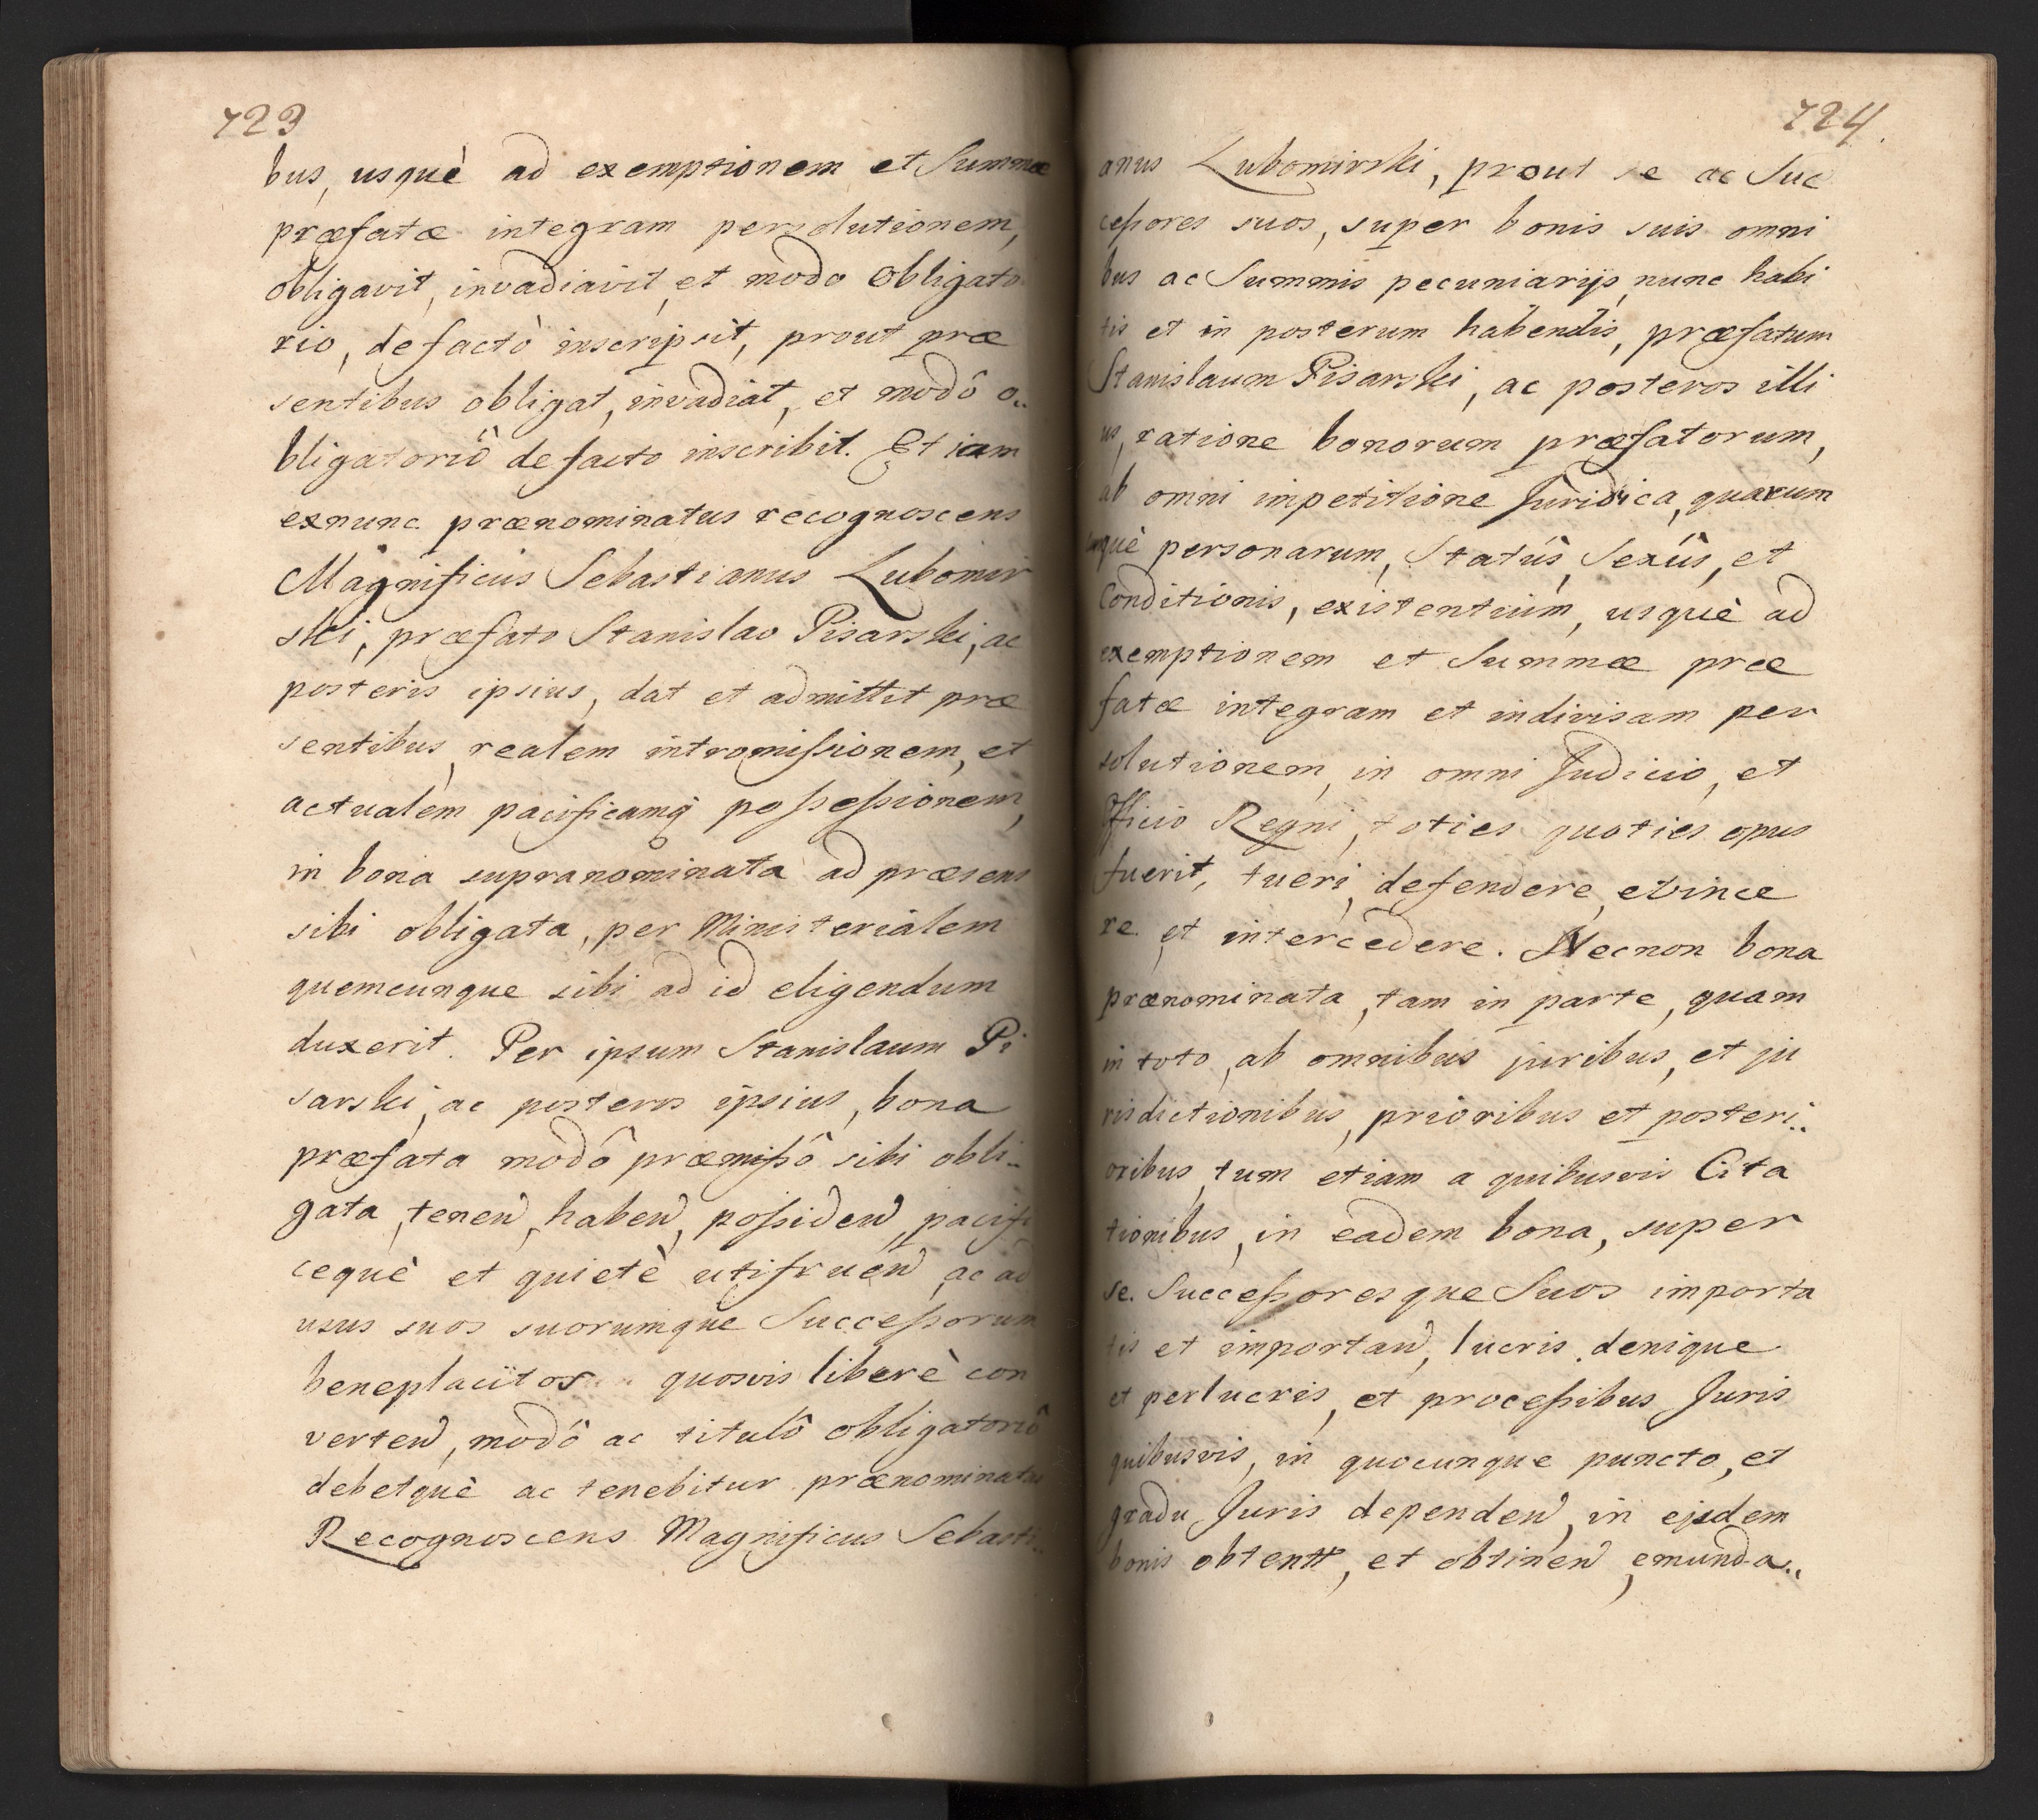 723
bus, usquè ad exemptionem et Summæ
præfatæ integram persolutionem,
obligavit, invadiavit, et modo obligato
rio, defactò inscripsit, prout præ
sentibus obligat, invadiat, et modô o..
bligatoriô defacto inscribit. Et iam
exnunc prænominatus recognoscens
Magnificus Sebastianus Lubomir
ski, præfato Stanislao Pisarski, ac
posteris ipsius, dat et admittit præ
sentibus, realem intromißionem, et
actualem pacificamq̃ poßeßionem,
in bona supranominata ad præsens
sibi obligata, per Ministerialem
quemcunque sibi ad id eligendum
duxerit. Per ipsum Stanislaum Pi
sarski, ac posteros ipsius, bona
præfata modô præmißô sibi obli..
gata, tenend, habend, poßidend, pacifi
cequè et quietè utifruend, ac ad
usus suos suorumque Succeßorum
beneplacitos quosvis liberè con
vertend, modô ac titulô obligatoriô
debetquè ac tenebitur prænominatus
Recognoscens Magnificus Sebasti..
724.
anus Lubomirski, prout se ac Suc
ceßores suos, super bonis suis omni
bus ac Summis pecuniarijs, nunc habi
tis et in posterum habendis, præfatum
Stanislaum Pisarski, ac posteros illi
us, ratione bonorum præfatorum,
ab omni impetitione Juridica, quarum
cunquè personarum, Statûs, Sexûs, et
Conditionis, existentium, usquè ad
exemptionem et Summæ præ
fatæ integram et indivisam per
solutionem, in omni Judicio, et
Officio Regni, toties quoties opus
fuerit, tueri, defendere, evince
re et intercedere. Necnon bona
prænominata, tam in parte, quam
in toto, ab omnibus juribus, et ju
risdictionibus, prioribus et posteri..
oribus, tum etiam a quibusvis Cita
tionibus, in eadem bona, super
se. Succeßoresque Suos importa
tis et importand, lucris denique
et perlucris, et proceßibus Juris
quibusvis, in quocunque puncto, et
gradu Juris dependend, in ejsdem
bonis obtentt, et obtinend, emunda..